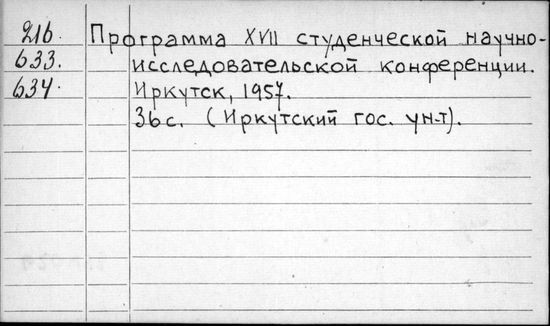 216. Программа XVII студенческой научно-
633. исследовательской конференции.
634. Иркутск, 1957.
36с. (Иркутский гос. ун-т).